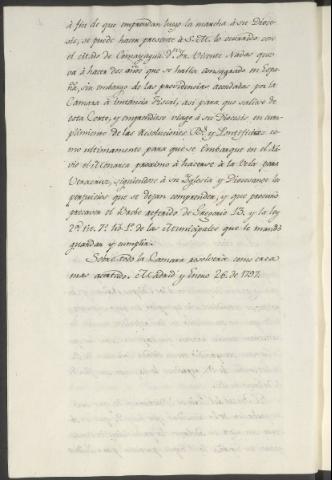 à fin de que emprendan luego la marcha à su Dioce-
sis, se puede hacer presente à S.M. lo ocurrido con
el citado de Comayagua Dn. Fr. Vicente Navas que
va à hacer dos años que se halla consagrado en Espa-
ña, sin embargo de las providencias acordadas por la
Camara à instancia Fiscal, asi para que saliese de
esta Corte, y emprendiese viage à su Diocesis en cum-
plimiento de las Resoluciones Rs. y Pontificias; co-
mo ultimamente para que se embarque en el Na-
vio el Monarca proximo à hacerse à la vela para
Veracruz, siguiendose à su Iglesia y Diocesanos los
perjuicios que se dejan comprender, y que procuró
precaver el Breve referido de Gregorio 13. y la ley
2a. tit. 7o. lib. 1o. de las Municipales que le manda
guardar y cumplir.
Sobre todo la Camara resolverá como crea
mas acertado. Madrid y Enero 26. de 1797.